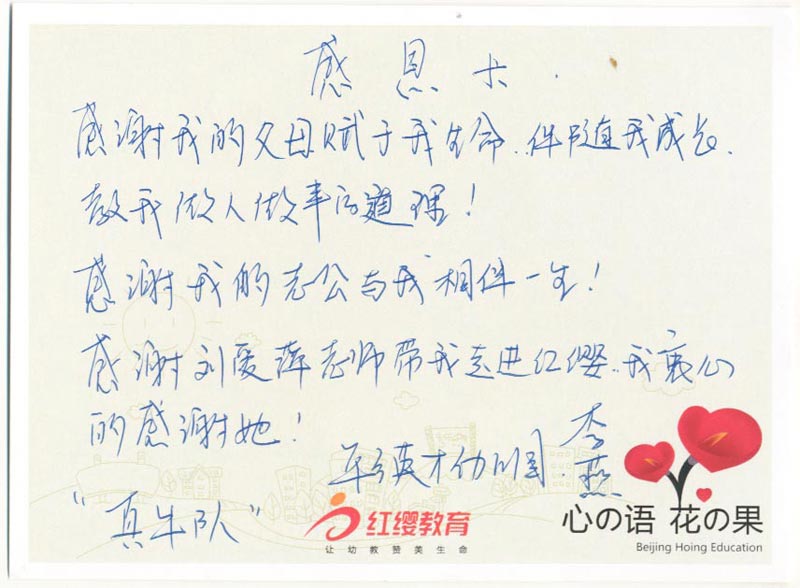 感恩卡.
感谢我的父母赋于我生命.伴随我成长.
教我做人做事的道理!
感谢我的老公与我相伴一生!
感谢刘爱萍老师带我走进红缨..我衷心
的感谢她!
英才幼儿园 李燕
“真牛队”
红缨教育
让幼教赞美生命
心の语 花の果
Beijing Hoing Education